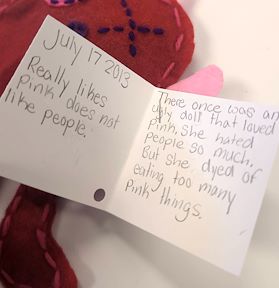 July 17 2013
Really likes
pink does not
like people.
There once was an
ugly doll that loved
pink. She hated
people so much.
But she dyed of
eating too many
Pink things.